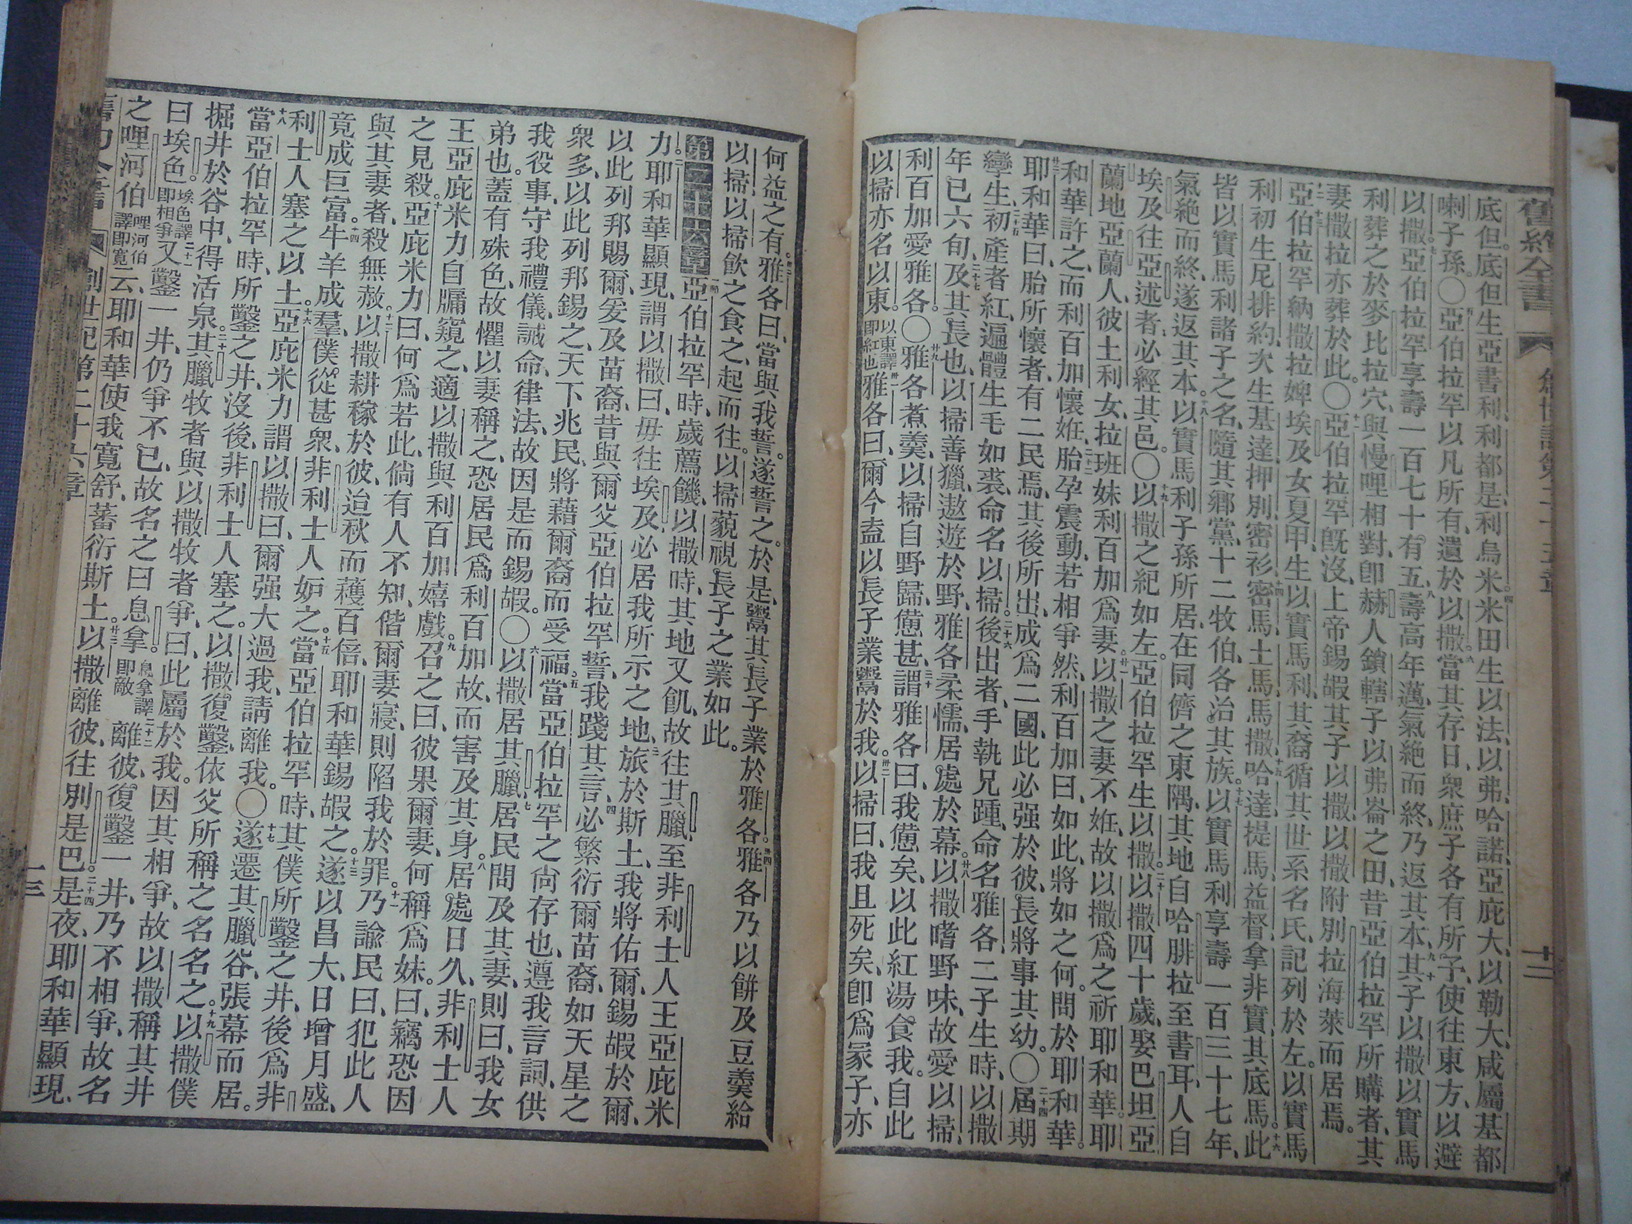 舊約全書
十二
底但底但生亞書利利都是利烏米米田生以法以弗哈諾亞庇大以勒大咸屬基都
喇子孫〇亞伯拉罕以凡所有遺於以撒當其存日衆庶子各有所予使往東方以避
以撒亞伯拉罕享壽一百七十有五壽高年邁氣絕而終乃返其本其子以撒以實馬
利葬之於麥比拉穴與慢哩相對卽赫人鎖轄子以弗崙之田昔亞伯拉罕所購者其
妻撒拉亦葬於此〇亞伯拉罕旣沒上帝錫嘏其子以撒以撒附別拉海萊而居焉
亞伯拉罕納撒拉婢埃及女夏甲生以實馬利其裔循其世系名氏記列於左以實馬
利初生尼排約次生基達押別密衫密馬土馬馬撒哈達提馬益督拿非實其底馬此
皆以實馬利諸子之名隨其鄉黨十二牧伯各治其族以實馬利享壽一百三十七年
氣絕而終遂返其本以實馬利子孫所居在同儕之東隅其地自哈腓拉至書耳人自
埃及往亞述者必經其邑〇以撒之紀如左亞伯拉罕生以撒以撒四十歲娶巴坦亞
蘭地亞蘭人彼土利女拉班妹利百加爲妻以撒之妻不姙故以撒爲之祈耶和華耶
和華許之而利百加懷姙胎孕震動若相爭然利百加曰如此將如之何問於耶和華
耶和華曰胎所懷者有二民焉其後所出成爲二國此必强於彼長將事其幼〇屆期
孿生初產者紅遍體生毛如裘命名以掃後出者手執兄踵命名雅各二子生時以撒
年已六旬及其長也以掃善獵遨遊於野雅各柔懦居處於幕以撒嗜野味故愛以掃
利百加愛雅各〇雅各煮羮以掃自野歸憊甚謂雅各曰我憊矣以此紅湯食我自此
以掃亦名以東以東譯卽紅也雅各曰爾今盍以長子業鬻於我以掃曰我且死矣卽爲冢子亦
何益之有雅各曰當與我誓遂誓之於是鬻其長子業於雅各雅各乃以餅及豆羮給
以掃以掃飲之食之起而往以掃藐視長子之業如此
第二十六章亞伯拉罕時歲薦饑以撒時其地又飢故往其臘至非利士人王亞庇米
力耶和華顯現謂以撒曰毋往埃及必居我所示之地旅於斯土我將佑爾錫嘏於爾
以此列邦賜爾爰及苗裔昔與爾父亞伯拉罕誓我踐其言必繁衍爾苗裔如天星之
衆多以此列邦錫之天下兆民將藉爾裔而受福當亞伯拉罕之尙存也遵我言詞供
我役事守我禮儀誡命律法故因是而錫嘏〇以撒居其臘居民問及其妻則曰我女
弟也蓋有殊色故懼以妻稱之恐居民爲利百加故而害及其身居處日久非利士人
王亞庇米力自牖窺之適以撒與利百加嬉戲召之曰彼果爾妻何稱爲妹曰竊恐因
之見殺亞庇米力曰何爲若此倘有人不知偕爾妻寢則陷我於罪乃諭民曰犯此人
與其妻者殺無赦以撒耕稼於彼迨秋而穫百倍耶和華錫嘏之遂以昌大日增月盛
竟成巨富牛羊成羣僕從甚衆非利士人妒之當亞伯拉罕時其僕所鑿之井後爲非
利士人塞之以土亞庇米力謂以撒曰爾强大過我請離我〇遂遷其臘谷張幕而居
當亞伯拉罕時所鑿之井沒後非利士人塞之以撒復鑿依父所稱之名名之以撒僕
掘井於谷中得活泉其臘牧者與以撒牧者爭曰此屬於我因其相爭故以撒稱其井
曰埃色埃色譯卽相爭又鑿一井仍爭不已故名之曰息拿息拿譯卽敵離彼復鑿一井乃不相爭故名
之哩河伯哩河伯譯卽寬云耶和華使我寬舒蕃衍斯土以撒離彼往別是巴是夜耶和華顯現
創世記第二十六章
十三